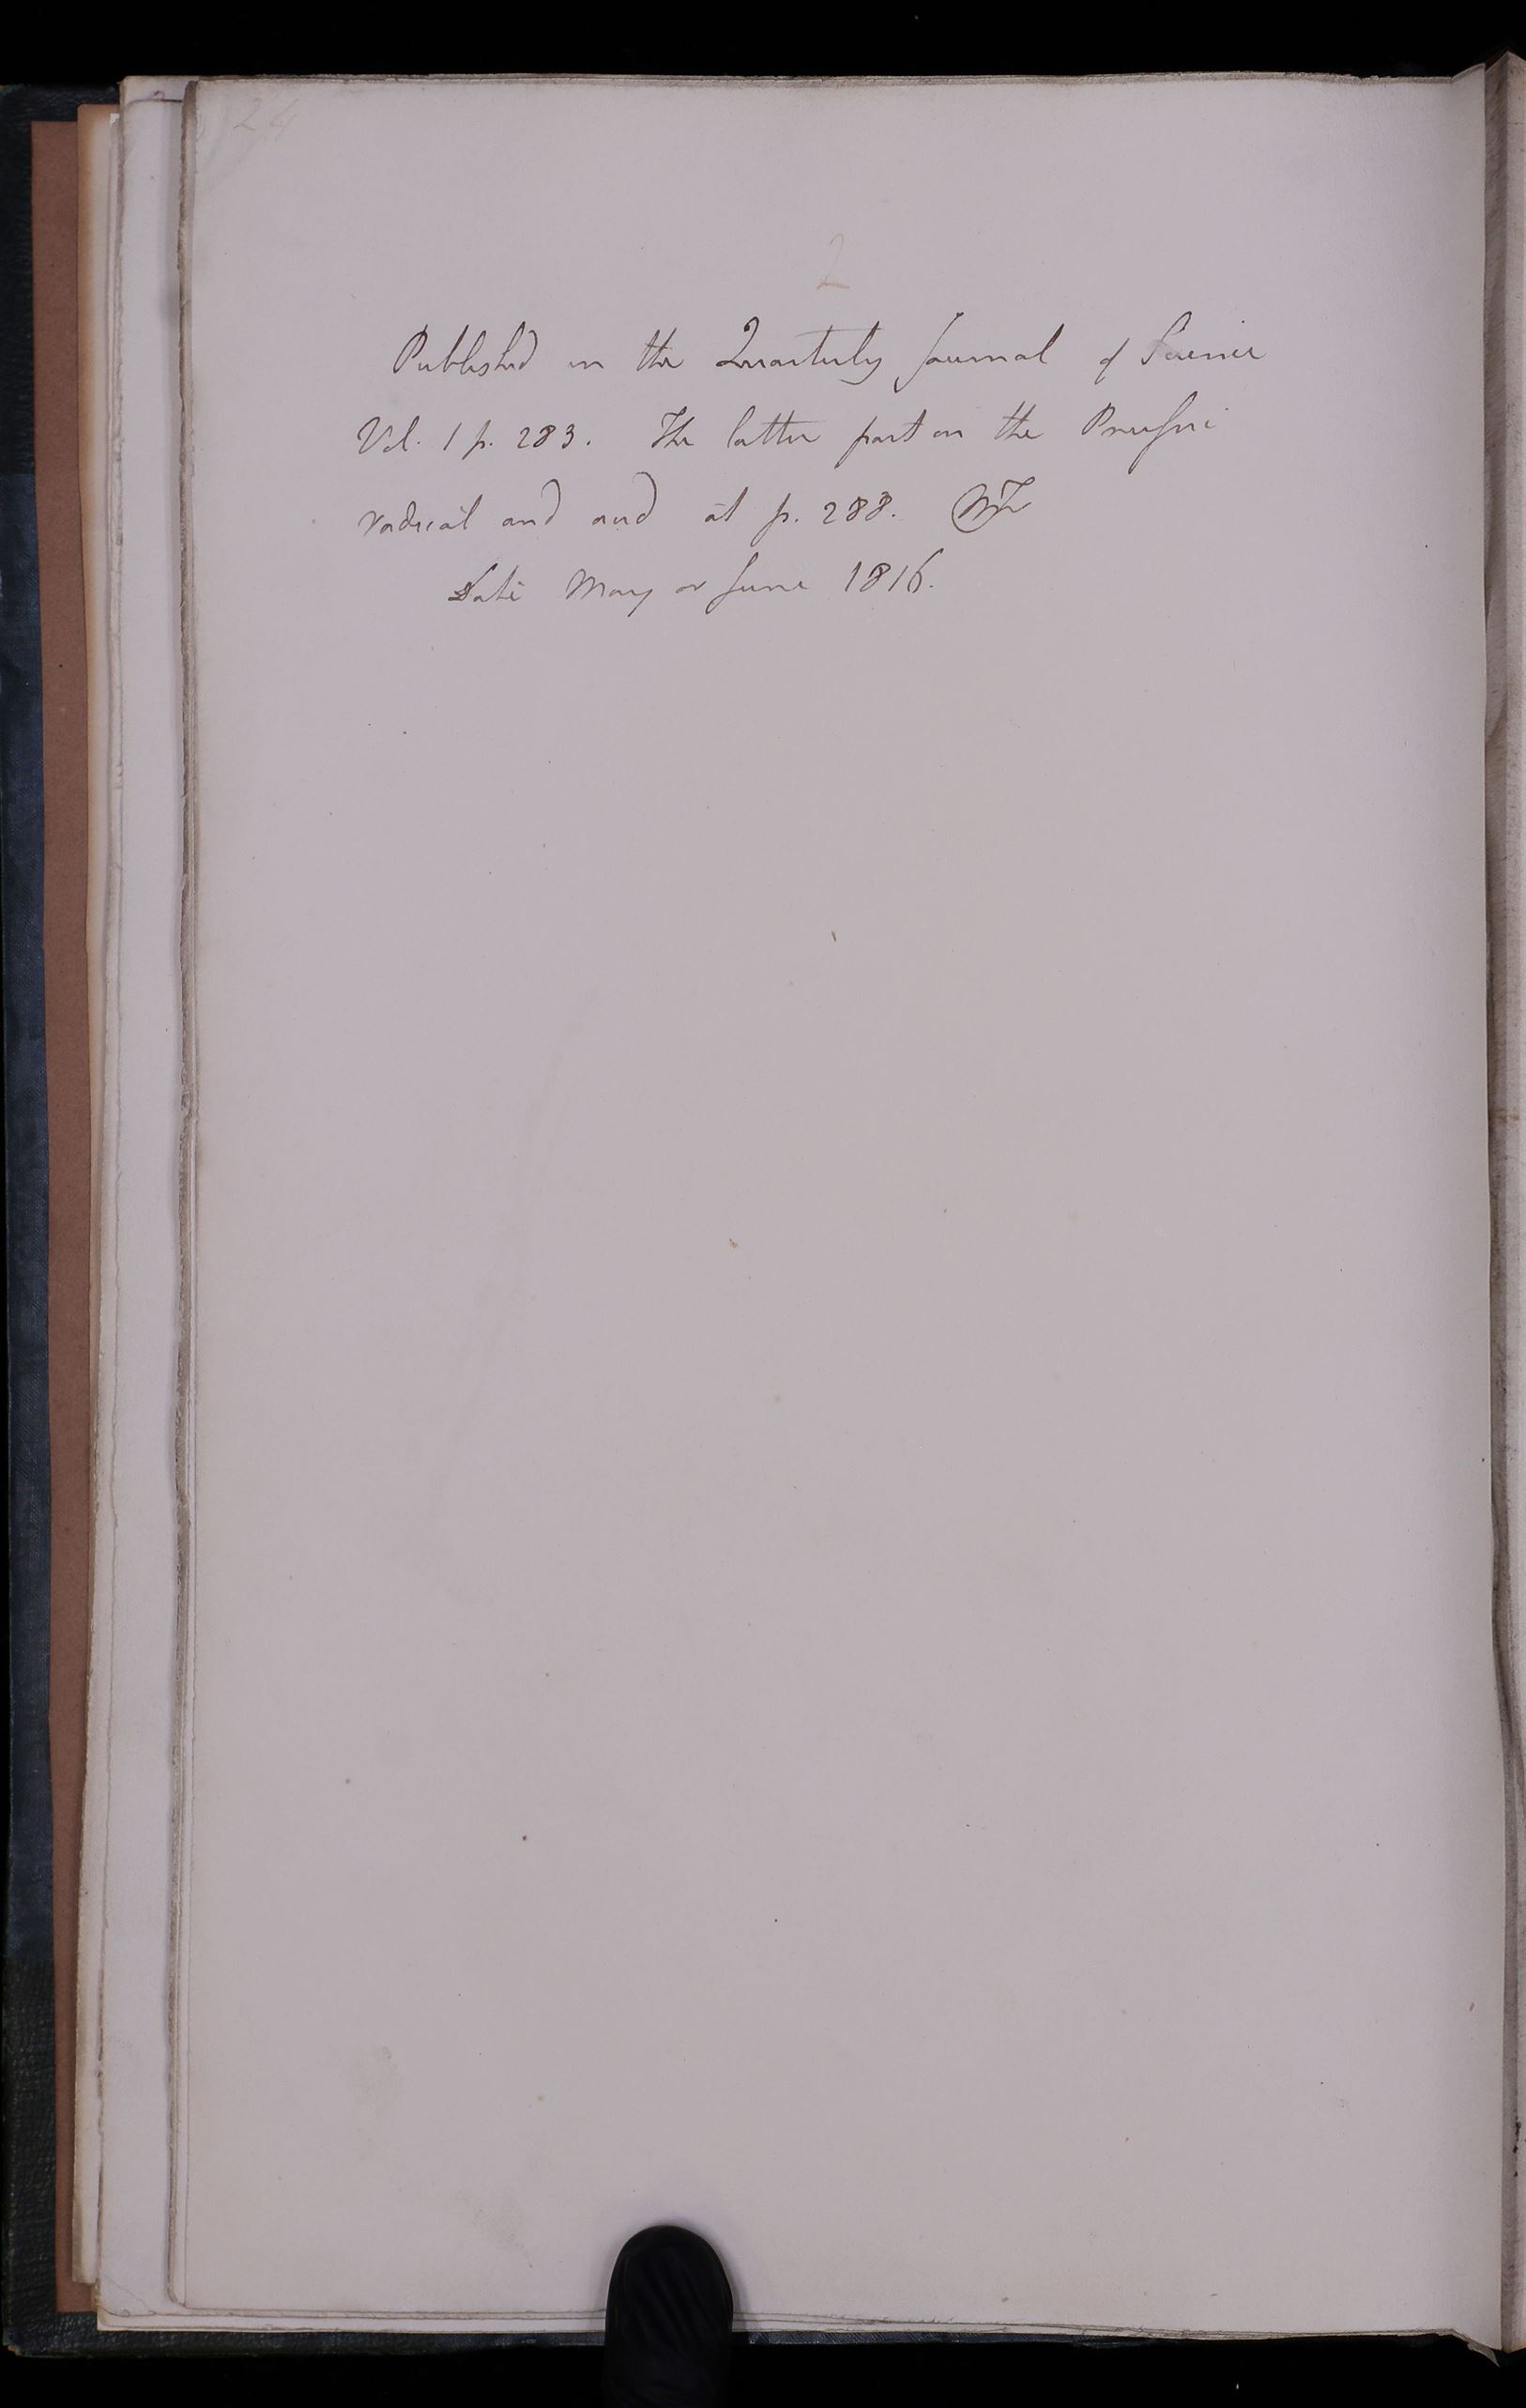 24
2
Published in the Quarterly Journal of Science
Vol. 1 p. 283. The latter part on the Prussic
radical and and at p. 288.
Date May or June 1816.